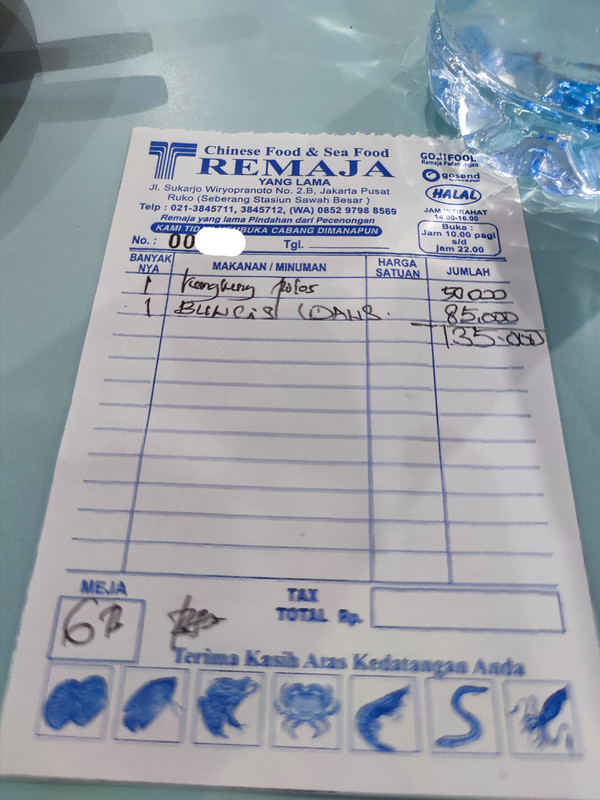 Chinese Food & Sea Food
REMAJA
YANG LAMA
Jl. Sukarjo Wiryopranoto No. 2.B, Jakarta Pusat
Ruko (Seberang Stasiun Sawah Besar )
Telp : 021-3845711, 3845712, (WA) 0852 9798 8569
Remaja yang lama Pindahan dari Pecenongan
KAMI TIDAK MEMBUKA CABANG DIMANAPUN
GOFOOD
Remaja Pecenongan
gosend
HALAL
JAM ISTIRAHAT
14.00-16.00
Buka :
Jam 10.00 pagi
s/d
jam 22.00
No. : 00
Tgl.
BANYAK NYA MAKANAN / MINUMAN HARGA SATUAN JUMLAH
1 Kangkung polos 50000
1 BUNCIS 85.000
135.000
MEJA
6
TAX
TOTAL Rp.
Terima Kasih Atas Kedatangan Anda